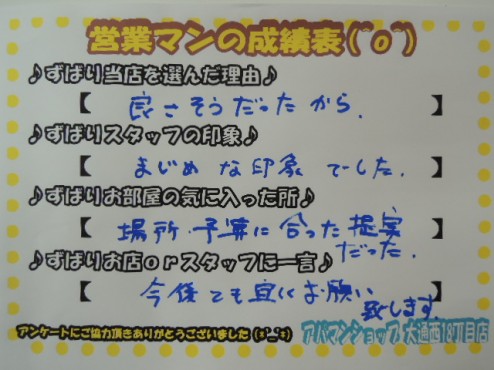 営業マンの成績表(^o^)
♪ずばり当店を選んだ理由♪
【 良さそうだったから. 】
♪ずばりスタッフの印象♪
【 まじめな印象でした. 】
♪ずばりお部屋の気に入った所♪
【 場所・予算に合った提案だった. 】
♪ずばりお店orスタッフに一言♪
【 今後とも宜しくお願い致します 】
アンケートにご協力頂きありがとうございました(*^_^*)
アパマンショップ 大通西18丁目店